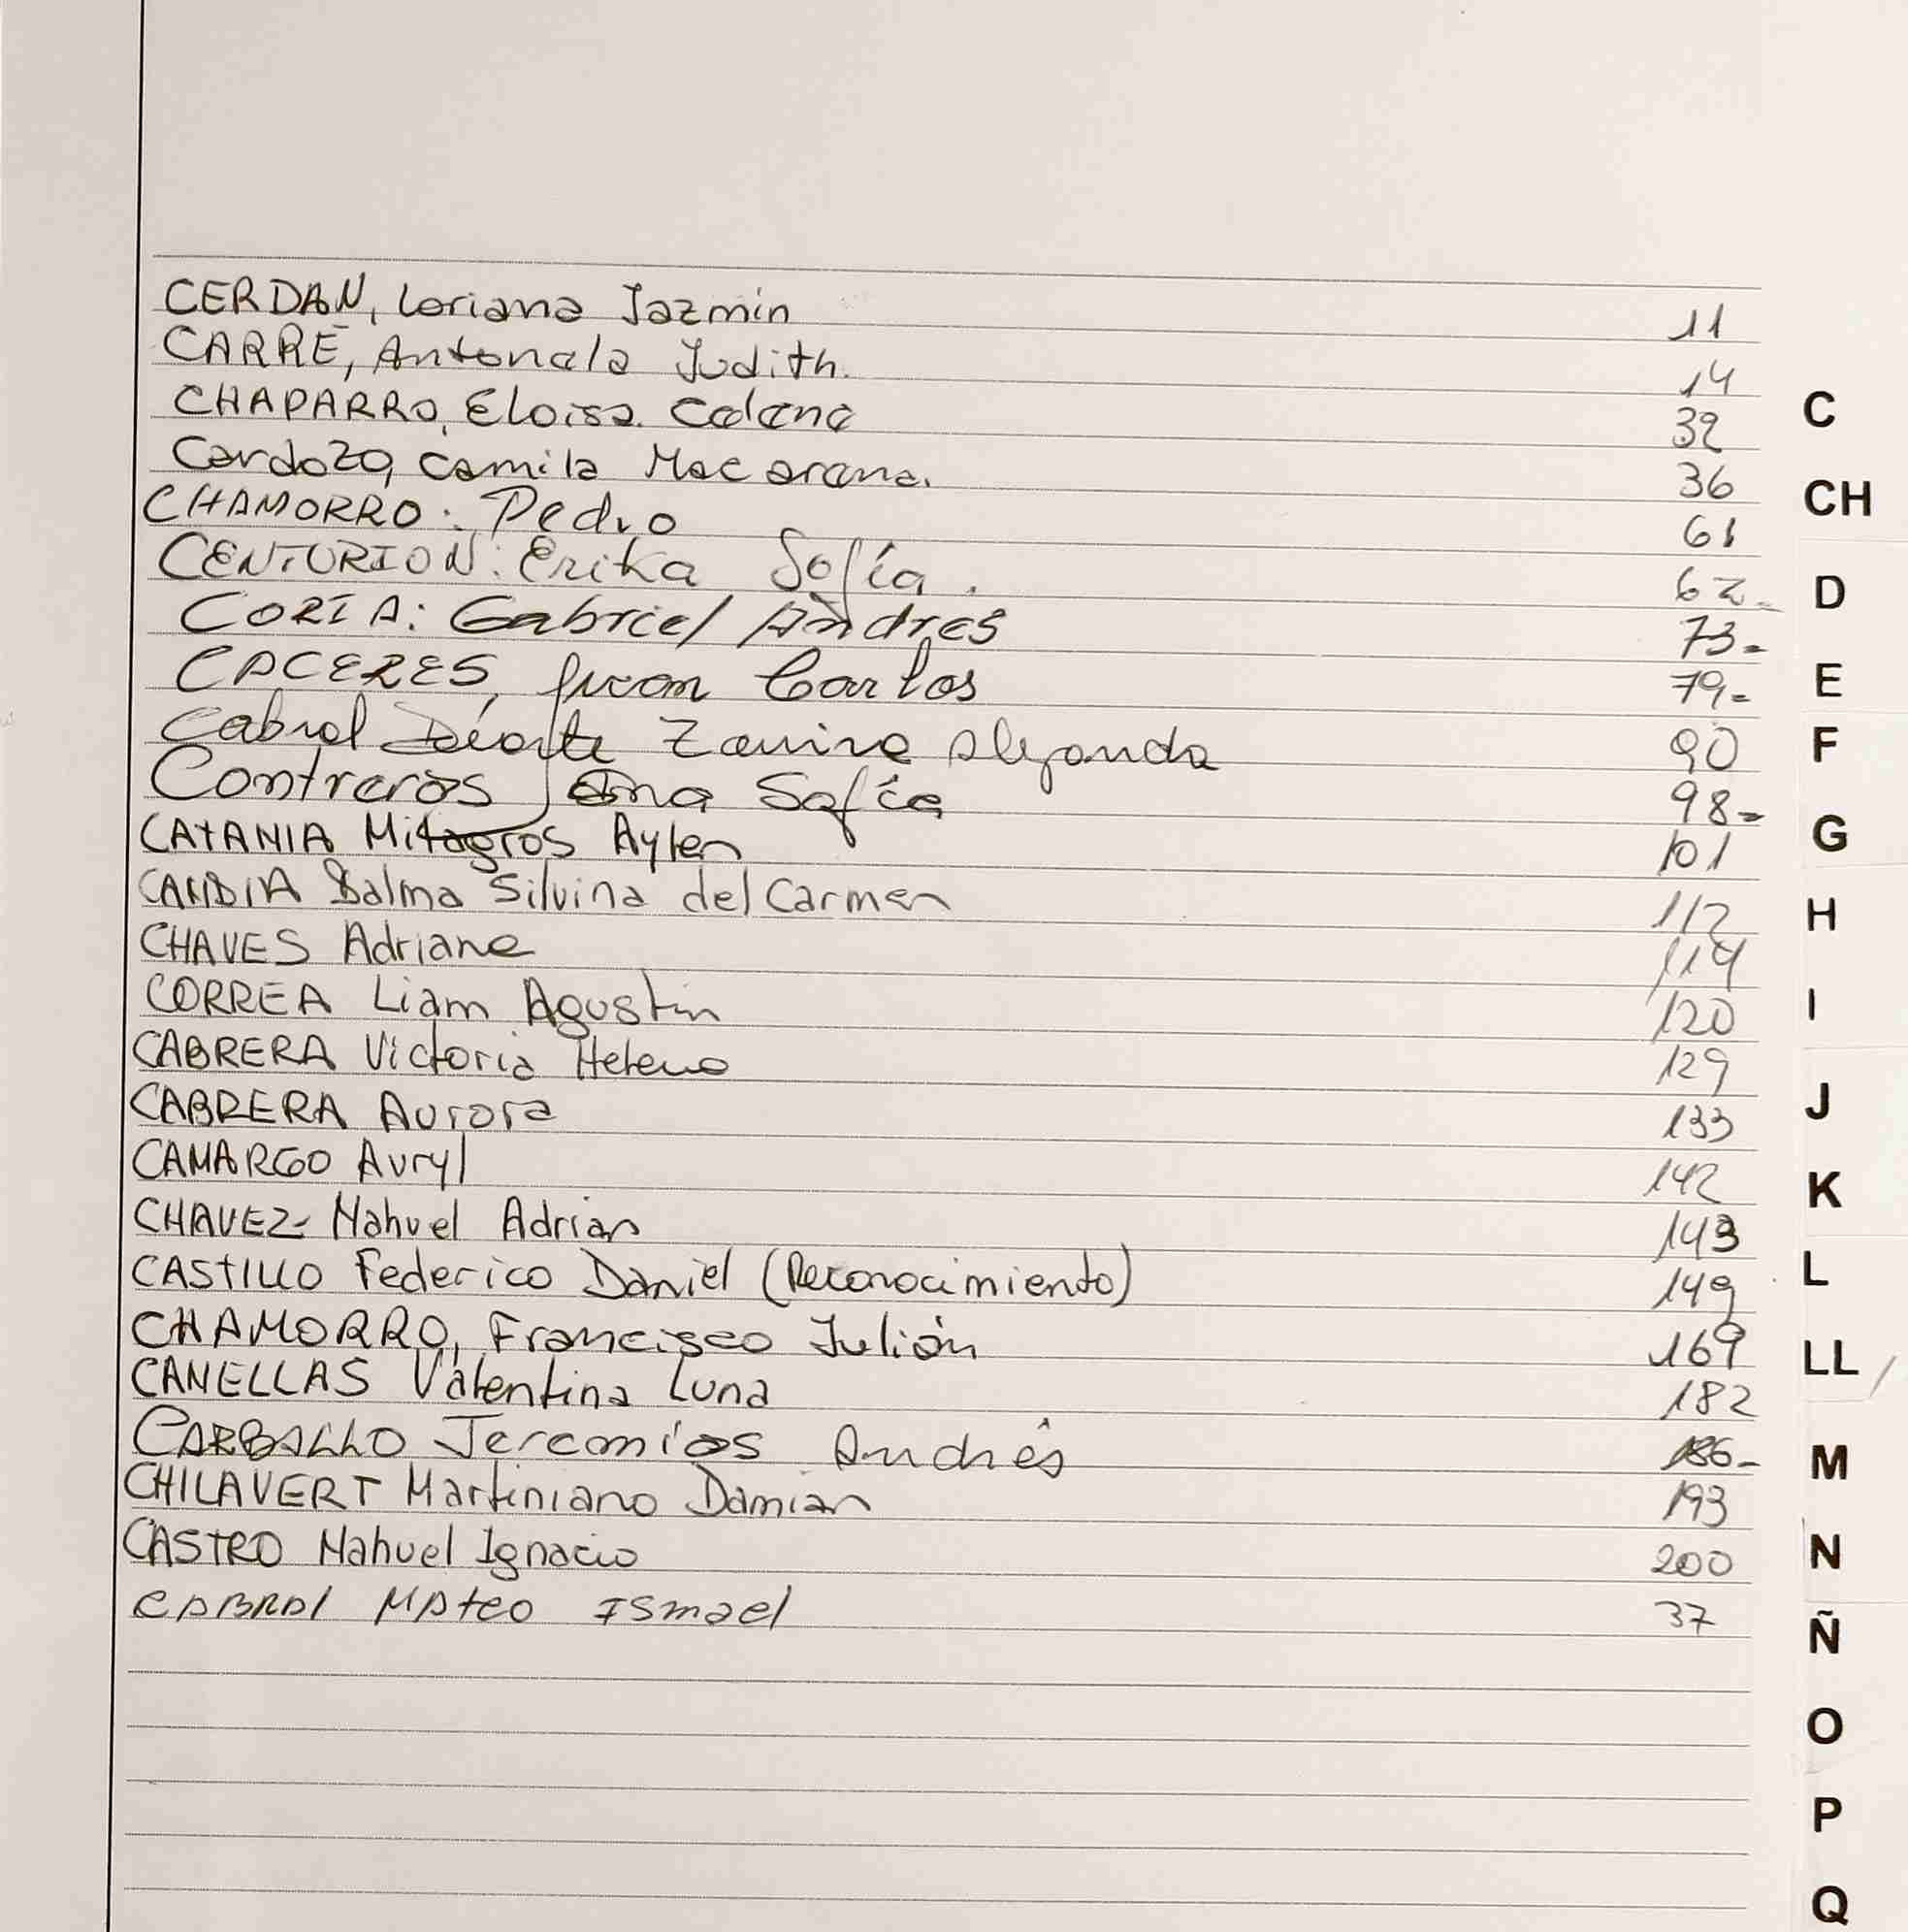 CERDAN, Loriana Jazmin 11
CARRE, Antonela Judith. 14
C
CHAPARRO, Eloisa. 32
Cardozo, Camila Macarena. 36
CH
CHAMORRO: Pedro 61
CENTURION: Erika Sofía. 62-
D
CORIA: Gabriel Andres 73-
CACERES, Juan Carlos 79-
E
Cabral Duarte Zamira Alejandra 90
F
Contreras Ana Sofía 98-
CATANIA Milagros Aylen 101
G
CANDIA Salma Silvina del Carmen 112
H
CHAVES Adriane 119
CORREA Liam Agustin 120
I
CABRERA Victoria Helena 129
CABRERA Aurora 133
J
CAMARGO Avryl 142
K
CHAVEZ Nahuel Adrian 143
CASTILLO Federico Daniel (Reconocimiento) 149
L
CHAMORRO, Francisco Julián 169
LL
CANELLAS Valentina Luna 182
CARBALLO Jeremías Andrés 186-
M
CHILAVERT Martiniano Damian 193
CASTRO Nahuel Ignacio 200
N
CABRAl MAteo ISmael 37
Ñ
O
P
Q